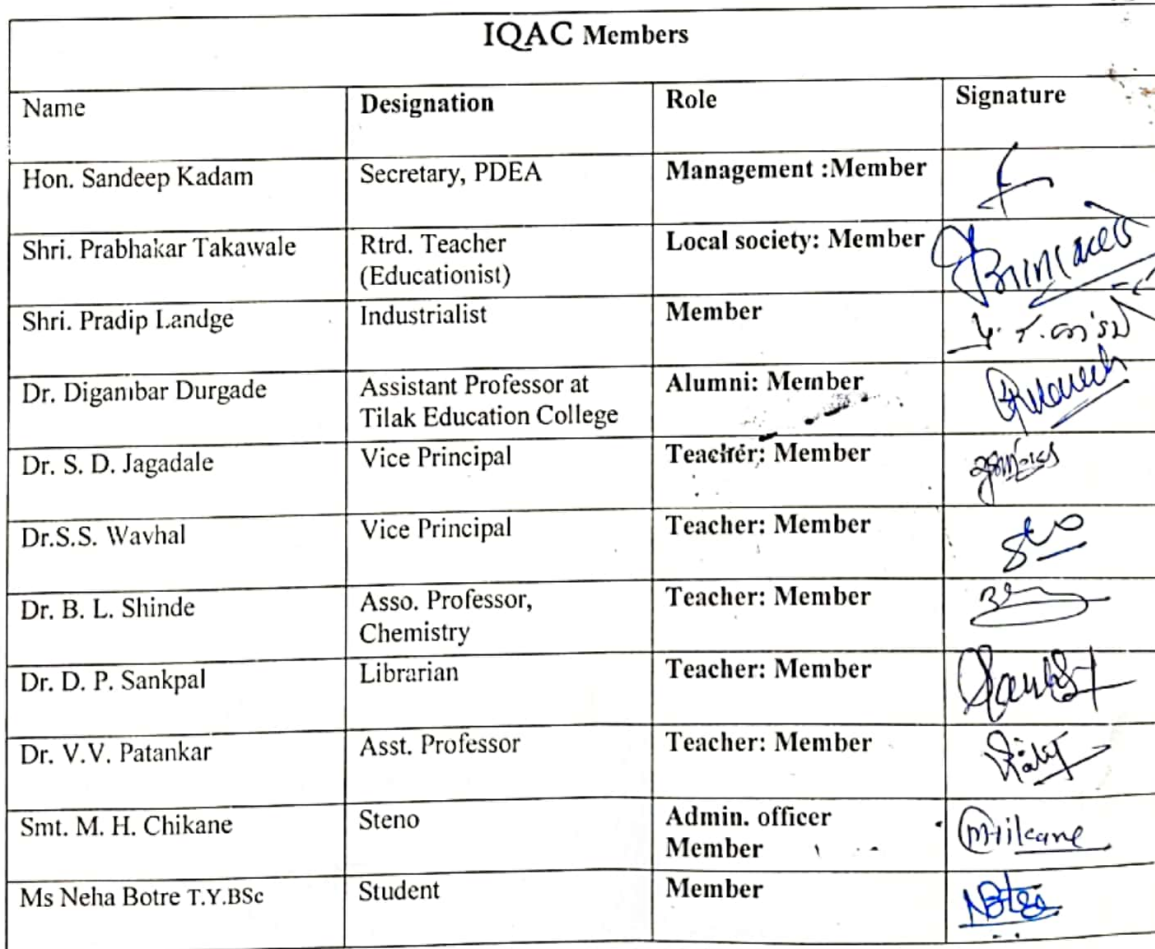 IQAC Members
Name Designation Role Signature
Hon. Sandeep Kadam Secretary, PDEA Management :Member
Shri. Prabhakar Takawale Rtrd. Teacher Local society: Member
(Educationist)
Shri. Pradip Landge Industrialist Member
Dr. Digambar Durgade Assistant Professor at Alumni: Member
Tilak Education College
Dr. S. D. Jagadale Vice Principal Teacher: Member
Dr.S.S. Wavhal Vice Principal Teacher: Member
Dr. B. L. Shinde Asso. Professor, Teacher: Member
Chemistry
Dr. D. P. Sankpal Librarian Teacher: Member
Dr. V.V. Patankar Asst. Professor Teacher: Member
Smt. M. H. Chikane Steno Admin. officer
Member
Ms Neha Botre T.Y.BSc Student Member